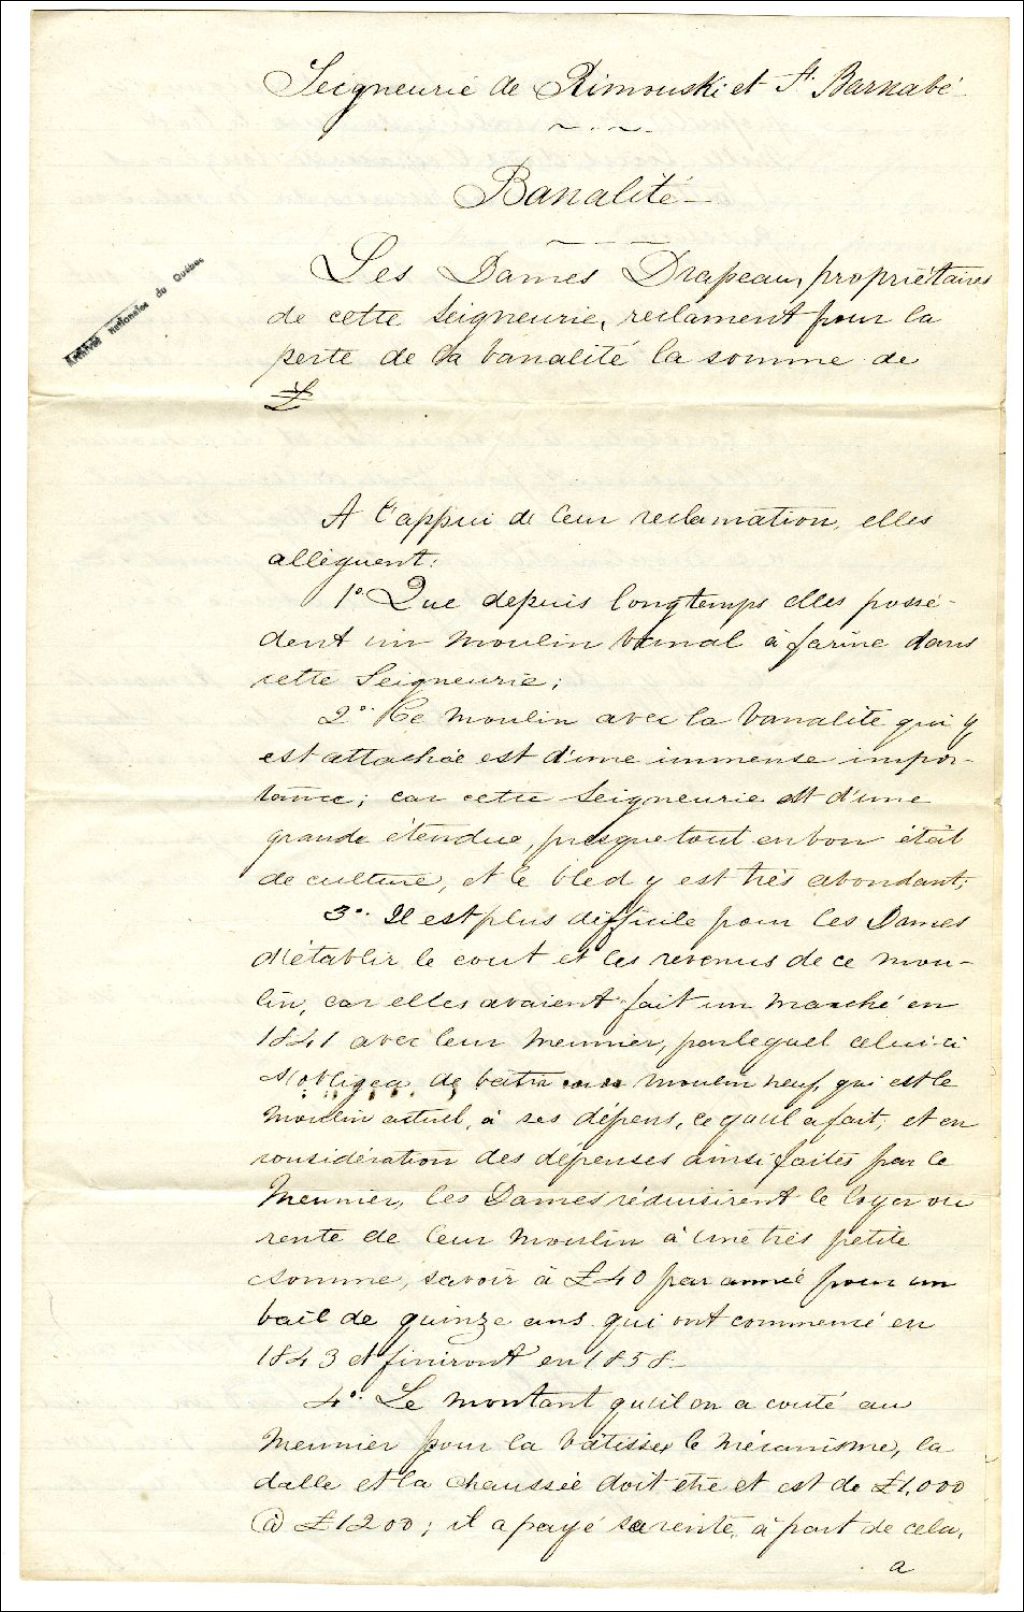 Seigneurie de Rimouski et St. Barnabé
Banalité
Les Dames Drapeau, propriétaires
de cette Seigneurie, reclament pour la
perte de la banalité la somme de
£
Archives Nationales du Québec
A l'appui de leur reclamation, elles
alléguent:
1o. Que depuis longtemps elles possé-
dent un moulin banal à farine dans
cette Seigneurie;
2o. Ce moulin avec la banalité qui y
est attachée est d'une immense impor-
tance; car cette Seigneurie est d'une
grande étendue, presque tout en bon état
de culture, et le bled y est très abondant;
3o. Il est plus difficile pour les Dames
d'établir le cout et les revenus de ce mou-
lin, car elles avaient fait un marché en
1841 avec leur meunier, par lequel celui-ci
s'obligea de batir un moulin neuf, qui est le
moulin actuel, à ses dépens, ce qu'il a fait; et en
considération des dépenses ainsi faites par le
Meunier, les Dames réduisirent le loyer ou
rente de leur moulin à une très petite
somme, savoir à £40 par année pour un
bail de quinze ans qui ont commencé en
1843 et finiront en 1858.
4o. Le montant qu'il en a couté au
Meunier pour la bâtisse, le mécanisme, la
dalle et la chaussée doit être et est de £1,000
@ £1200; il a payé sa rente, à part de cela,
a